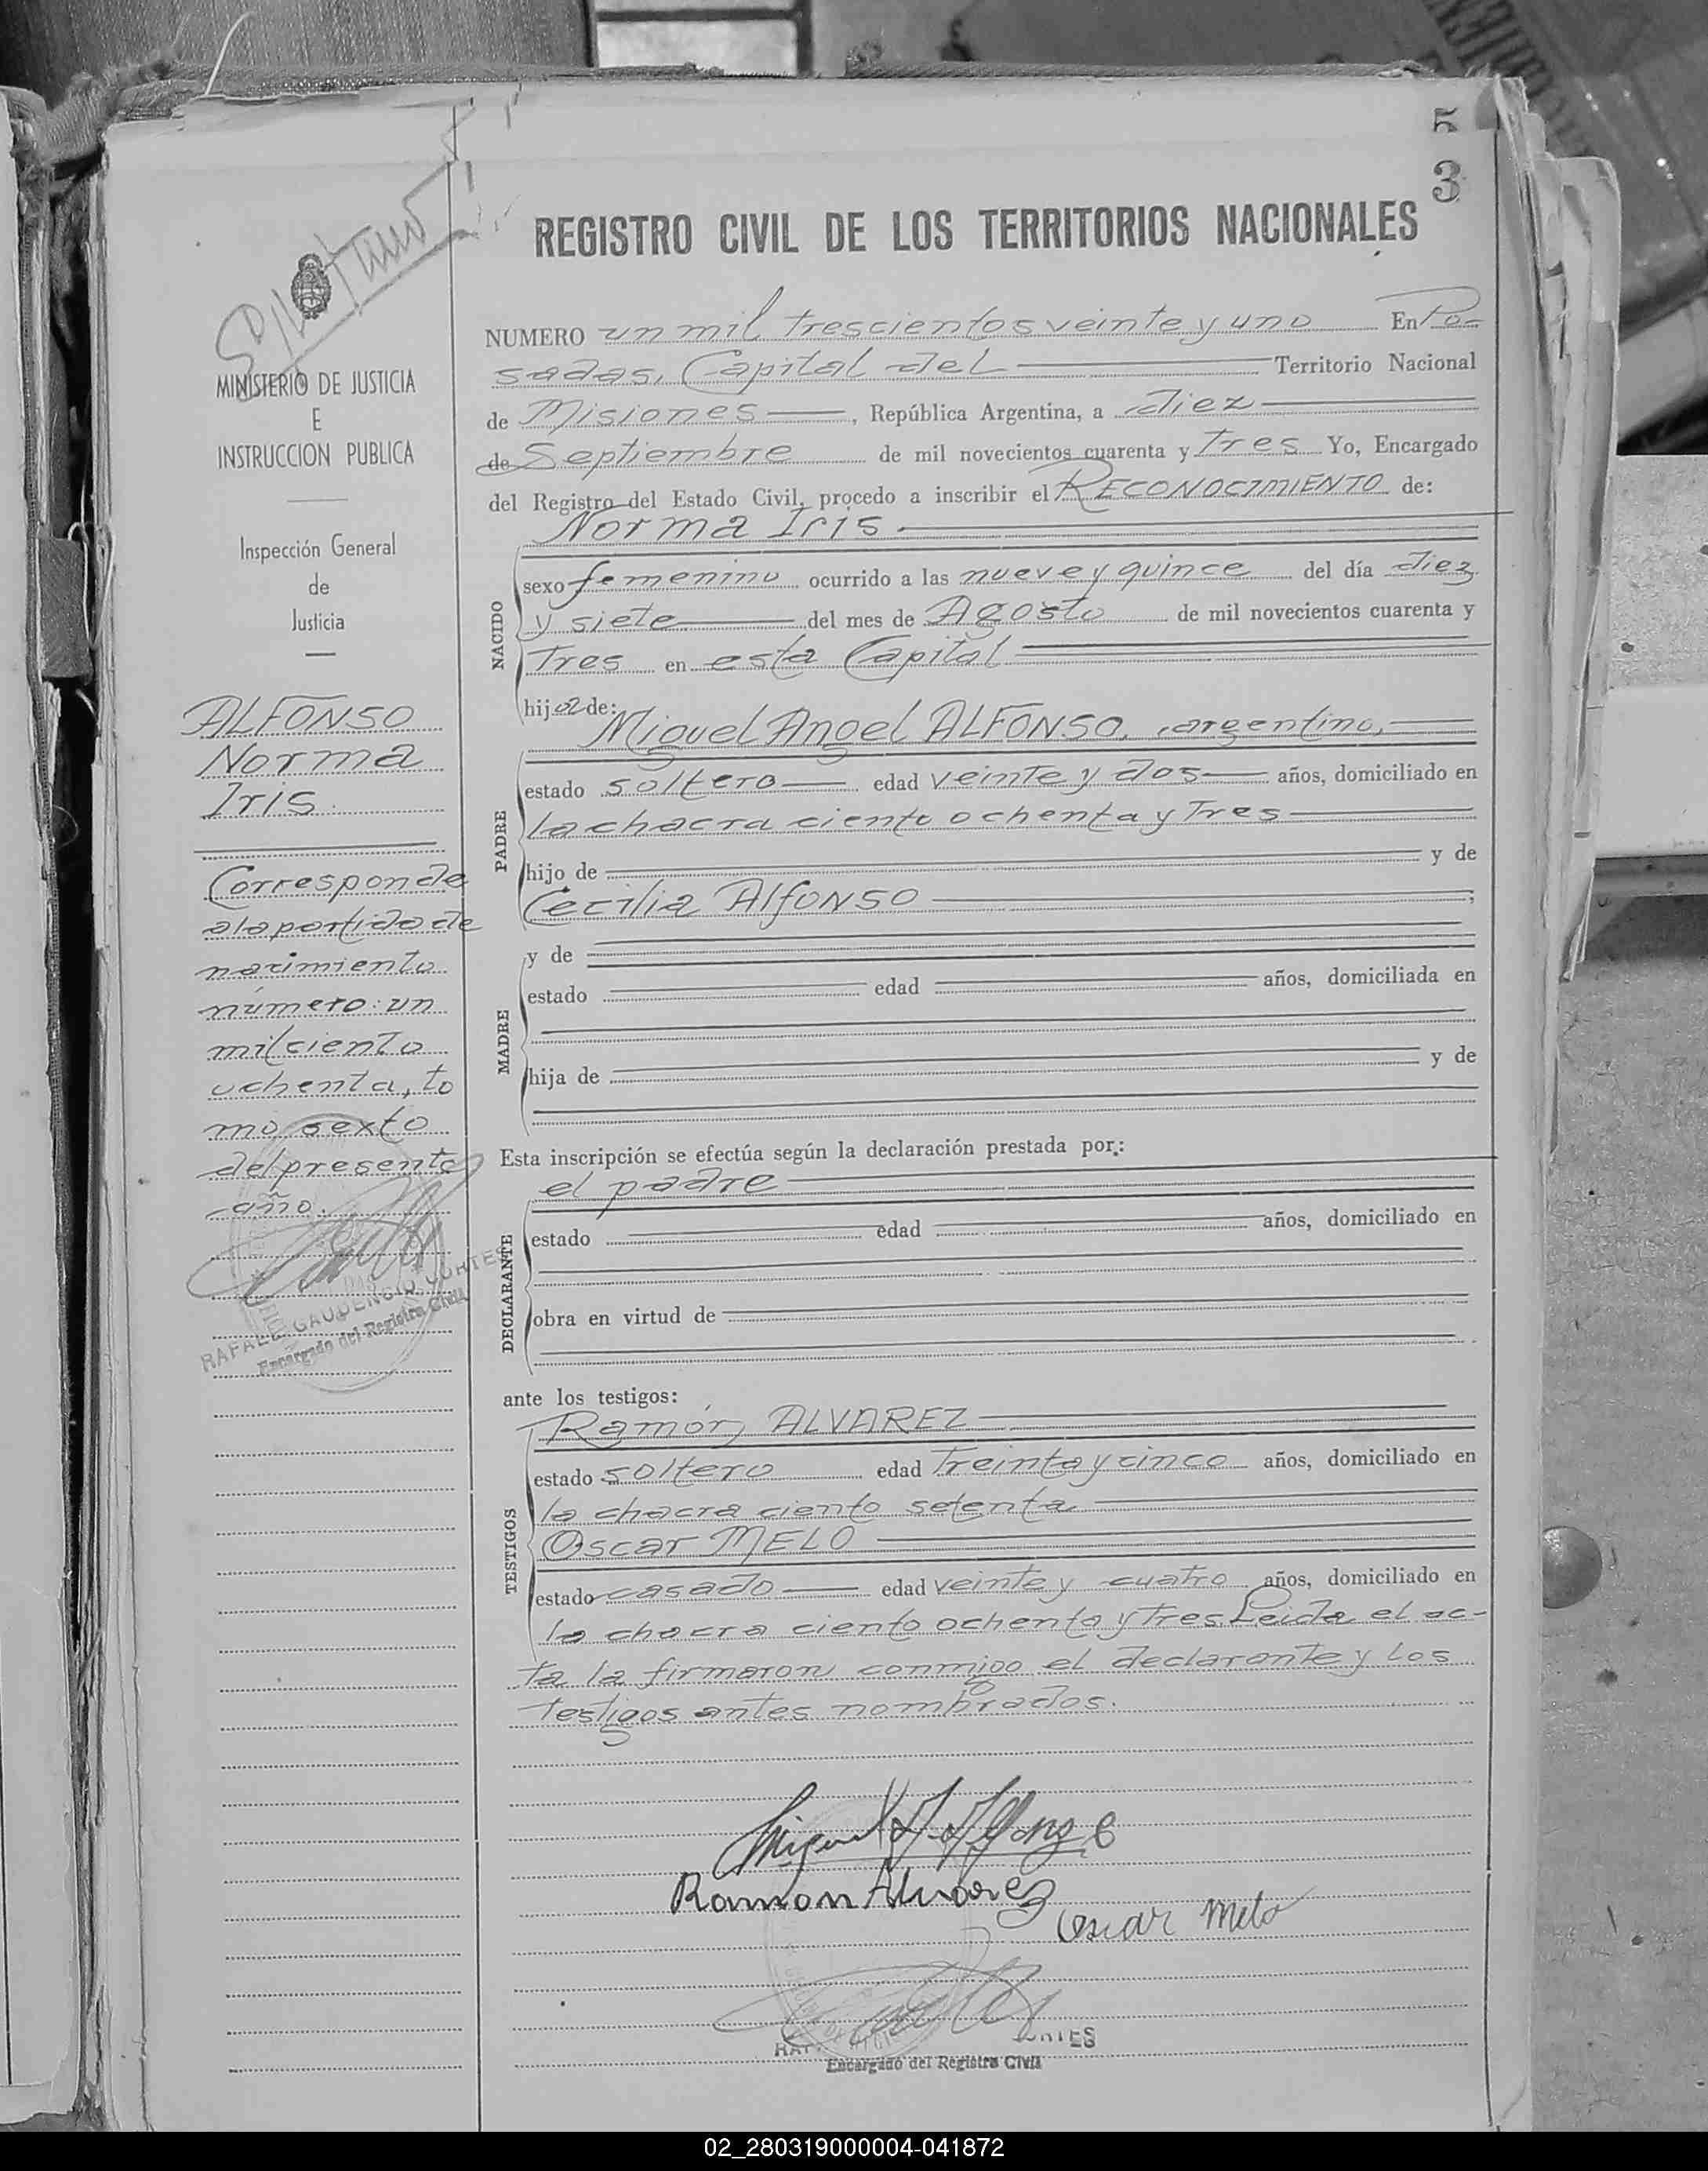 5
3
REGISTRO CIVIL DE LOS TERRITORIOS NACIONALES
MINISTERIO DE JUSTICIA
E
INSTRUCCION PUBLICA
Inspección General
de
Justicia
ALFONSO
Norma
Iris
Corresponde
a la partida de
nacimiento
número: un
mil ciento
ochenta, to
mo sexto
del presente
año.
RAFAEL GAUDENCIO CORTES
Encargado del Registro Civil
NUMERO un mil trescientos veinte y uno En Po-
sadas, Capital del Territorio Nacional
de Misiones, República Argentina, a diez
de Septiembre de mil novecientos cuarenta y Tres Yo, Encargado
del Registro del Estado Civil, procedo a inscribir el RECONOCIMIENTO de:
Norma Iris
NACIDO
sexo femenino ocurrido a las nueve y quince del día diez
y siete del mes de Agosto de mil novecientos cuarenta y
Tres en esta Capital
hija de:
PADRE
Miguel Angel ALFONSO, argentino,
estado soltero edad veinte y dos años, domiciliado en
la chacra ciento ochenta y Tres
hijo de y de
Cecilia Alfonso
MADRE
y de
estado edad años, domiciliada en
hija de y de
Esta inscripción se efectúa según la declaración prestada por:
DECLARANTE
el padre
estado edad años, domiciliado en
obra en virtud de
ante los testigos:
TESTIGOS
Ramón ALVAREZ
estado soltero edad Treinta y cinco años, domiciliado en
la chacra ciento setenta
Oscar MELO
estado casado edad veinte y cuatro años, domiciliado en
la chacra ciento ochenta y Tres. Leida el ac-
ta la firmaron conmigo el declarante y los
testigos antes nombrados.
Miguel A. Alfonso
Ramon Alvarez
Oscar Melo
Encargado del Registro Civil
02_280319000004-041872